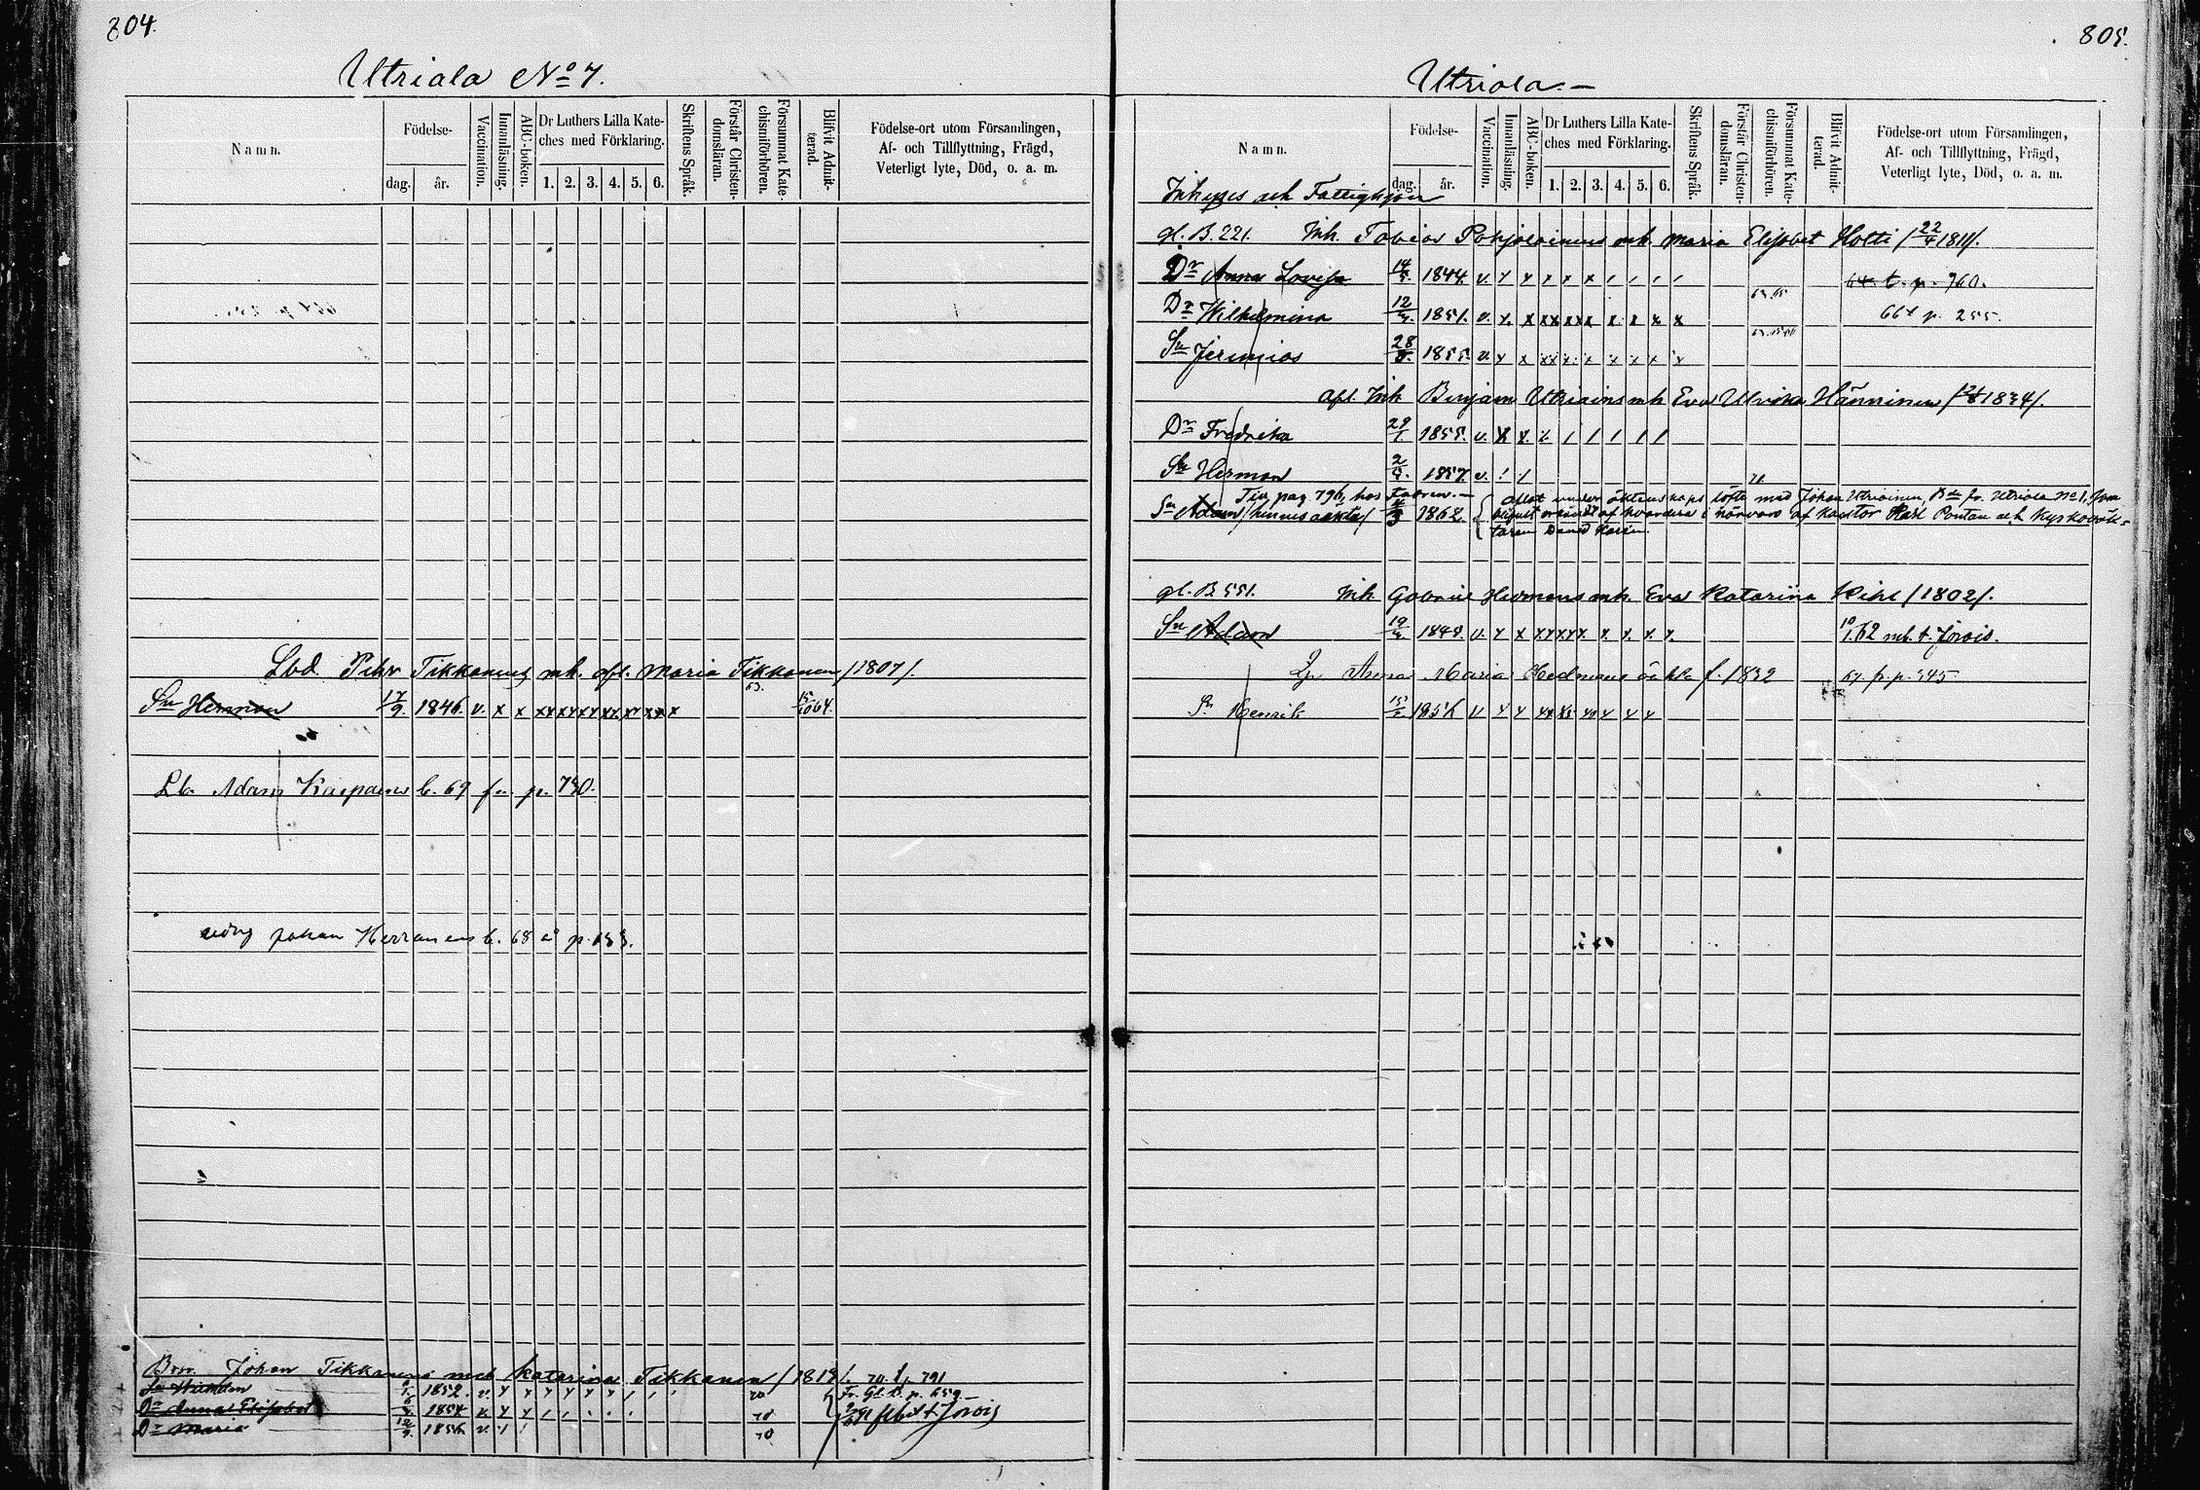 804.
Utriala No 7.
Namn.
Födelse-
dag. år.
Vaccination.
Innanläsning.
ABC-boken.
Dr Luthers Lilla Kate-
ches med Förklaring.
1. 2. 3. 4. 5. 6.
Skriftens Språk.
Förstår Christen-
domsläran.
Försummat Kate-
chismiförhören.
Blifvit Admit-
terad.
Födelse-ort utom Församlingen,
Af- och Tillflyttning, Frägd,
Veterligt lyte, Död, o. a. m.
Lbd Petr Tikkanens mh. afl. Maria Tikkanen /1807/.
63.
Sn Herman 17/9. 1846. v. x x xx xx xx xx xx xx x 15/10 64.
Lb. Adam b. 69 fr. p. 790.
Johan Herranens b. 68 p. 153.
Bon. Johan Tikkanens mh Katarina Tikkanen /1819/. 70. t. 791
1852. v. x x x x x x 70 Fr. Gl. B. p. 659
Dr Anna Elisabet 1854 v. x x 70 t. Jorois
Dr Maria 12/9. 1856 v. 70
805.
Utriala.
Namn.
Födelse-
dag. år.
Vaccination.
Innanläsning.
ABC-boken.
Dr Luthers Lilla Kate-
ches med Förklaring.
1. 2. 3. 4. 5. 6.
Skriftens Språk.
Förstår Christen-
domsläran.
Försummat Kate-
chismiförhören.
Blifvit Admit-
terad.
Födelse-ort utom Församlingen,
Af- och Tillflyttning, Frägd,
Veterligt lyte, Död, o. a. m.
Inhyses och Fattighjon
gl. B. 221. Inh. Tobias Pohjolainens mh. Maria Elisabet Holti /22/4 1811/.
Dr Anna Lovisa 14/5. 1844. v. x x x x x / / / / 64 t. p. 760.
63. 65
Dr Wilhelmina 12/4. 1851. v. x. x xx xxx x. x x x 66 t p. 255.
Sn Jeremias 28/8. 1855. v. x x xx x. x x x x x
afl. Inh Benjam Utriainens mh Eva Ulrika Hänninen /12/8 1834/.
Dr Fredrika 29/1 1855. v. x x. x / / / / /
Sn Herman 2/4. 1857. v. / /
71
Tjn. pag 796, hos fadren.
Sn Adam /hennes oäkta/ 4/3 1862. { aflat under äktenskaps löfte med Johan Utriainen, Bde fr. Utriala No 1, som
af hvardera i närvaro af kantor Karl Pontan och Kyrkoväk-
taren
gl. B 551. Inh Gabriel Hedmans mh Eva Katarina Kihl /1802/.
Sn Adam 19/4. 1848. v. x x xxxxx x. x. x. x. 10/1. 62 mb. t. Jorois.
Lp Anna Maria Hedmans oäkta f. 1832 67 fr. p. 345
Sn Henrik 15/2 1856 v x x xx xx xx x x x